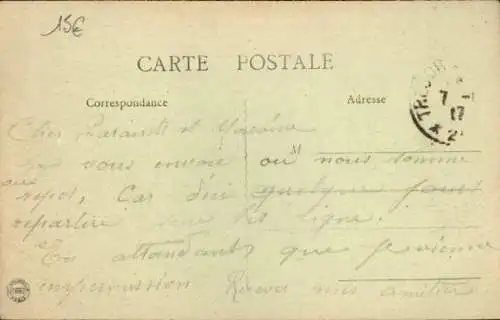 15€
CARTE POSTALE
Correspondance
Adresse
TRESOR
7 - 1
17
* 2
Cher Parants et
vous envoie ou nous somme
M
au repot, Car d'ici quelque jour
repartire les ligne.
En attandant que je vienne
en permission Receve mes amitier